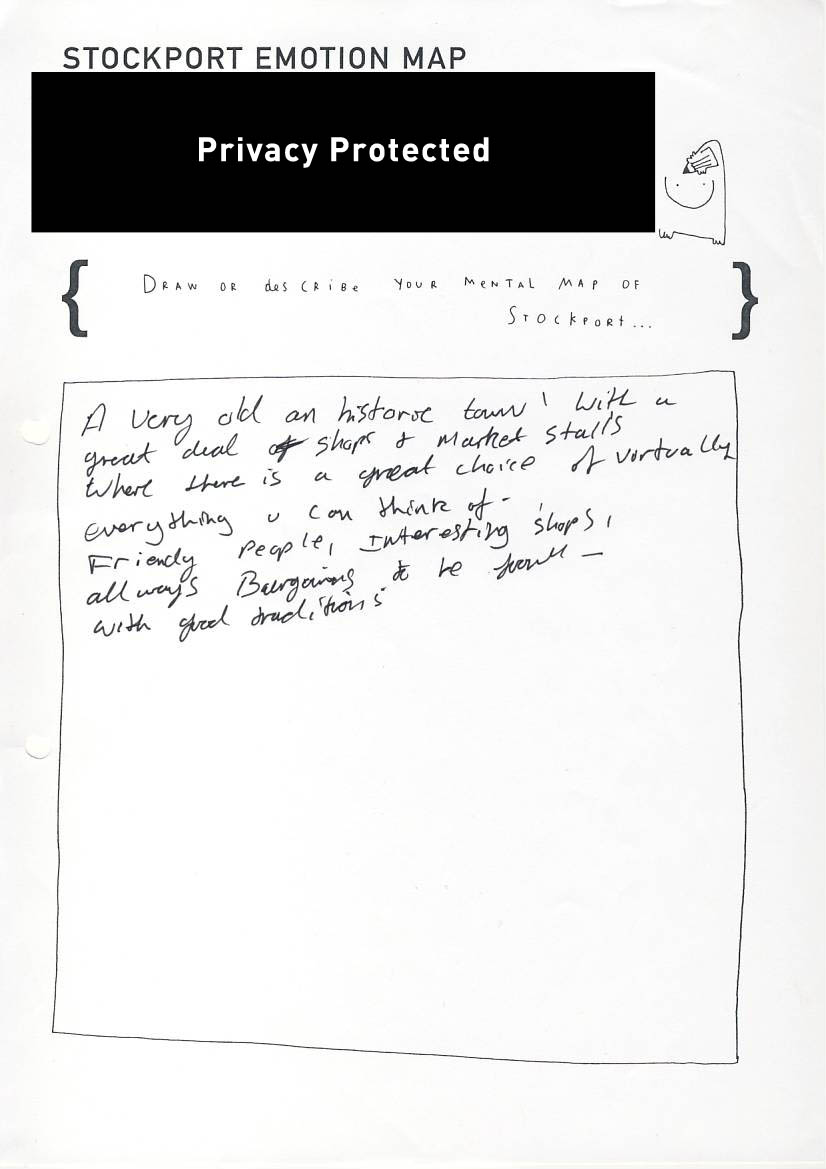 STOCKPORT EMOTION MAP
Privacy Protected
{ DRAW OR desCRiBe YOUR MeNTAL MAP OF
STOCkPORt... }
A very old an historic town, with a
great deal of shops & market stalls
Where there is a great choice of virtually
everything u can think of -
Friendly people, Interesting shops,
allways Bargains to be found -
with good traditions